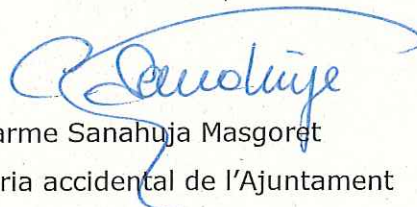 C Sanahuja
arme Sanahuja Masgoret
ria accidental de l'Ajuntament